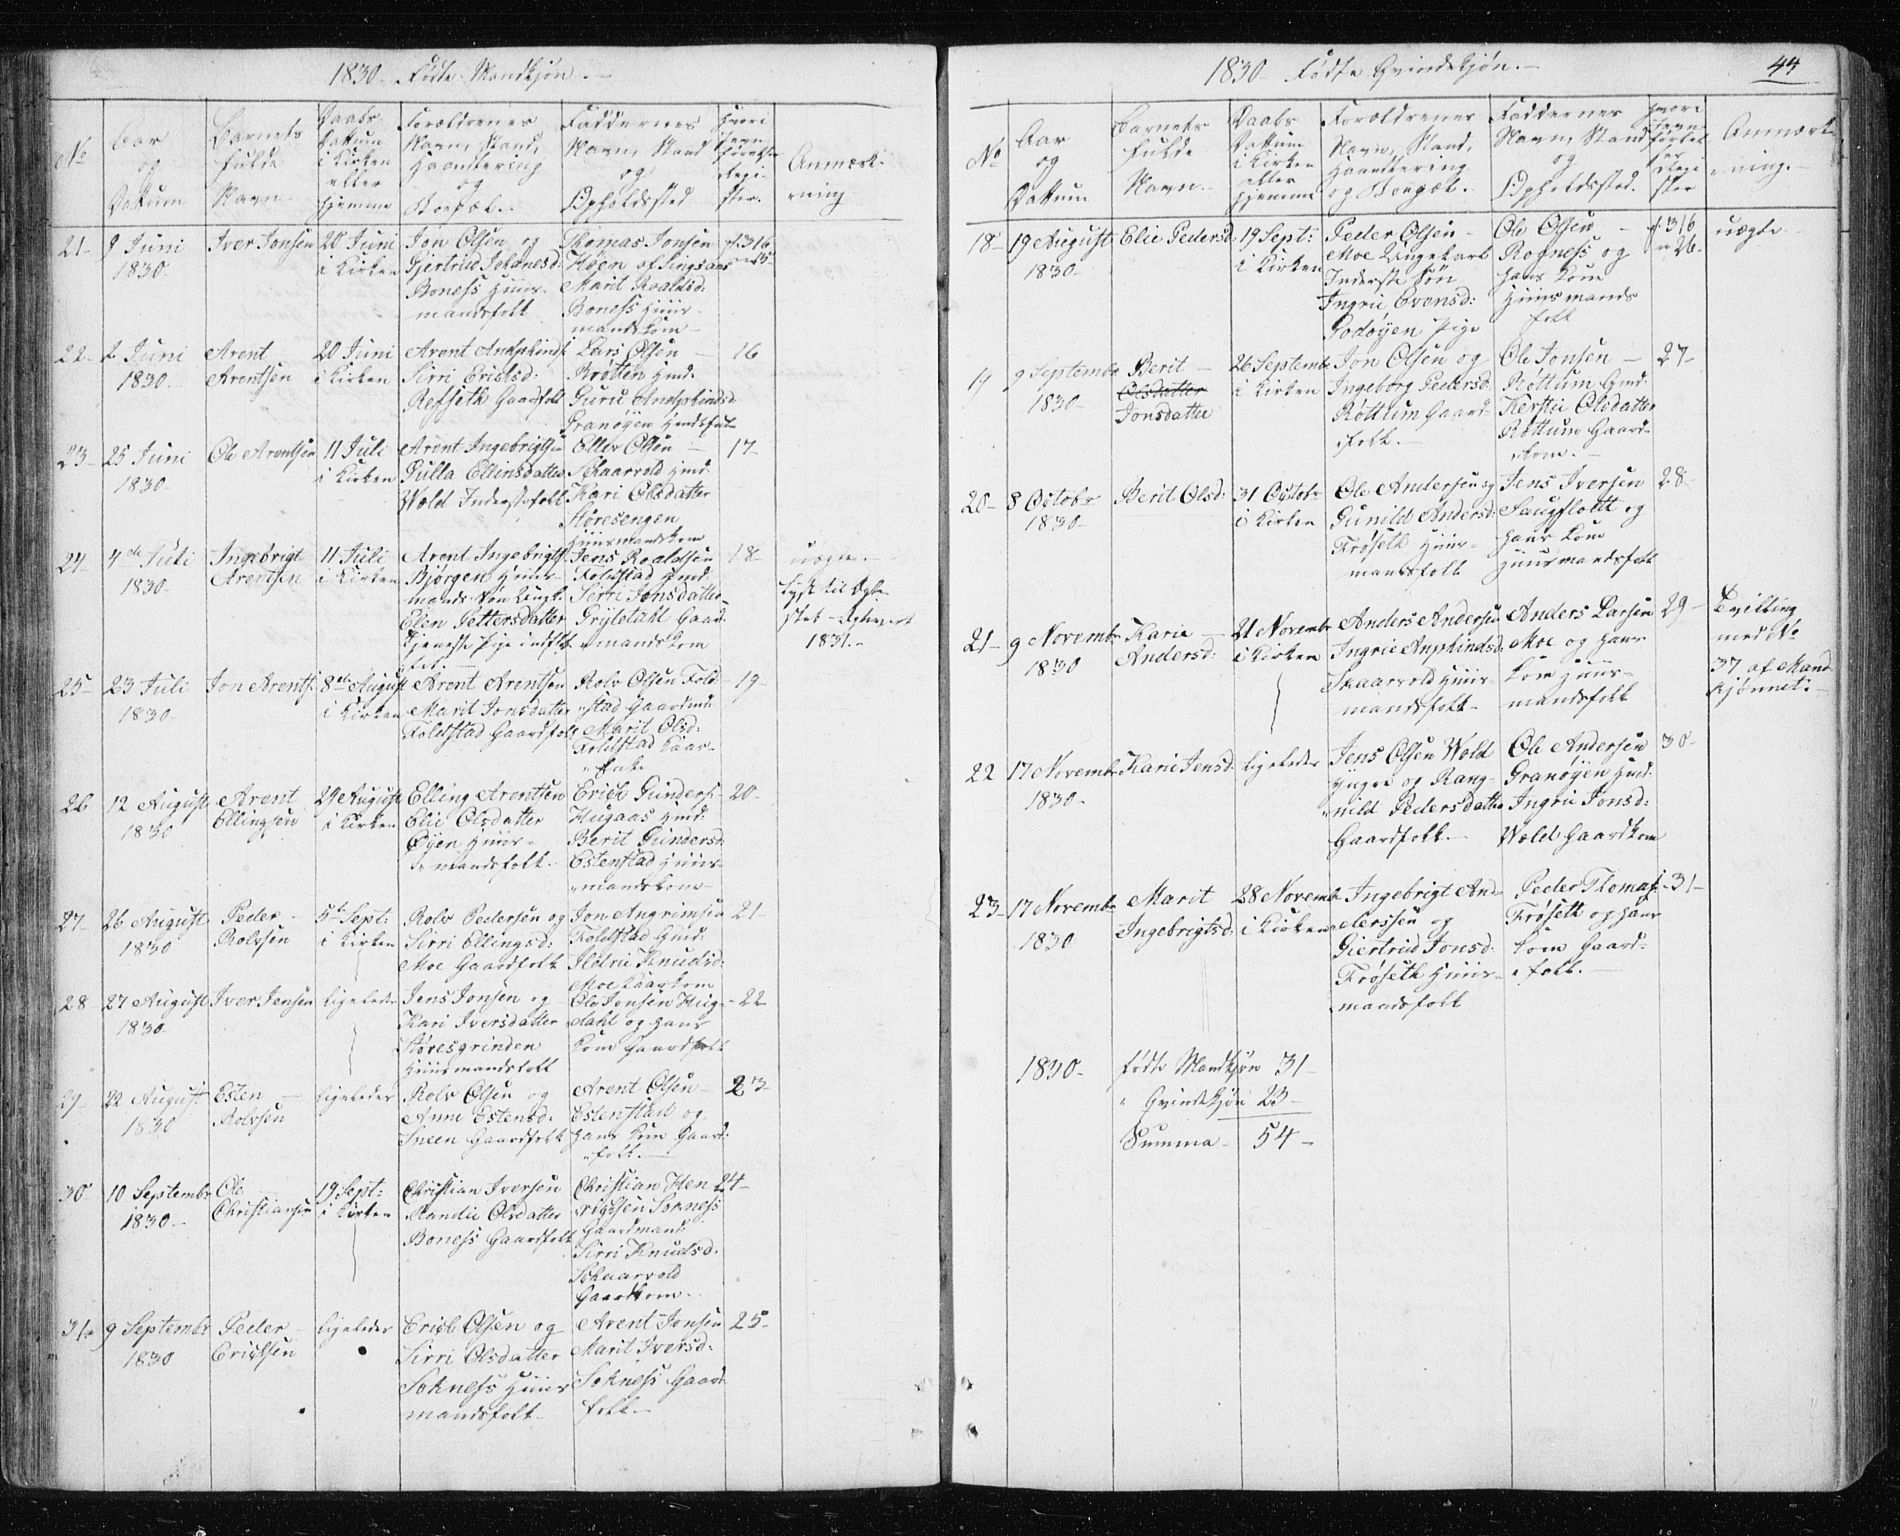 1830. Födte Mandkjön.
No
Aar
og
Dattum
Barnets
fulde
Navn
Daabs
Dattum
i Kirken
eller
hjemme
Forældrenes
Navn, Stand,
Haandtering
og
Boepæl.
Faddernes
Navn, Stand
og
Opholdssted
Anmærk-
ning
21-
9 Juni
1830
Iver Jonsen
20 Juni
i Kirken
Jon Olsen og
Gjertrud Johanesd:
Boness Huus-
mandsfolk
Thomas Jonsen
Høen af Singsaas
Marit Roaldsd:
Boness Huus-
mandskone
316
15
22-
2 Juni
1830
Arent
Arentsen
20 Juni
i Kirken
Arent
Sirri Erichsd:
Refseth Gaardfolk
Lars Olsen
Brøtten
Guru
Granøyen
16
23-
25 Juni
1830
Ole Arentsen
11 Juli
i Kirken
Arent Ingebrigtsen
Gulla Ellinsdatter
Wold Inderstefolk
Eller Olsen
Skaarvold
Kari Olsdatter
Støresengen
Huusmandskone
17-
24-
4de Juli
1830
Ingebrigt
Arentsen
11 Juli
i Kirken
Arent Ingebrigts:
Bjørgen Huus-
mands Søn
Elen Pettersdatter
Tjeneste Pige
Jens Roaldsen
Foldstad
Sirri Jonsdatter
Gaard-
mandskone
18-
uægte
1831.
25-
23 Juli
1830
Jon Arents:
8de August
i Kirken
Arent Arentsen
Marit Jonsdatter
Foldstad Gaardfolk
Rolv Olsen Fold-
stad Gaardmd:
Marit Olsd:
Foldstad
19-
26
12 August
1830
Arent
Ellingsen
29 August
i Kirken
Elling Arentsen
Elie Olsdatter
Øyen Huus-
mandsfolk
Erich Gunders:
Hugaas
Berit Gundersd:
Estenstad Huus-
mandskone
20-
27-
26 August
1830
Peder
Rolvsen
5te Sept:
i Kirken
Rolv Pedersen og
Sirri Ellingsd:
Moe Gaardfolk
Jon Angrimsen
Foldstad
Ildrie Knudsd:
Moe
21-
28
27 August
1830
Iver Jensen
ligeledes
Jens Jonsen og
Kari Iversdatter
Støresgrinden
Huusmandsfolk
Ole Jonsen Hug-
dahl og hans
Kone Gaardfolk
22
29
22 August
1830
Esten
Rolvsen
ligeledes
Rolv Olsen og
Anne Estensd:
Sneen Gaardfolk
Arent Olsen
Estenstad og
hans Kone Gaard-
folk.
23-
30
10 Septembr
1830
Ole
Christiansen
19 Sept:
i Kirken
Christian Iversen
Randie Olsdatter
Boness Gaardfolk
Christian Hen-
richsen Sokness
Gaardmand
Sirri Knudsd.
Skaarvold
Gaardkone
24-
31-
9 Septembr
1830
Peder
Erichsen
ligeledes
Erich Olsen og
Sirri Olsdatter
Sokness Huus-
mandsfolk
Arent Jonsen
Marit Iversd:
Sokness Gaard-
folk
25-
1830- Födte Qvindekjön.-
44
No
Aar
og
Dattum
Barnets
fulde
Navn
Daabs
Dattum
i Kirken
eller
hjemme
Forældrenes
Navn, Stand,
Haandtering
og Boepæl.
Faddernes
Navn, Stand
og
Opholdssted.
Anmærk-
ning.
18-
19 August
1830
Elie Pedersd:
19 Sept:
i Kirken
Peder Olsen
Moe Ungekarl
Inderste Søn
Ingrie Evensd:
Godøyen Pige
Ole Olsen
Rogness og
hans Kone
Huusmands
folk
316
26
uægte
19
9 Septembr
1830
Berit
Olsdatter
Jonsdatter
26 Septembr
i Kirken
Jon Olsen og
Ingeborg Pedersd:
Røttum Gaard-
folk
Ole Jonsen
Røttum
Kerstie Olsdatter
Røttum Gaard-
kone.
27-
20-
8 Octobr
1830
Berit Olsd:
31 Octobr
i Kirken
Ole Andersen og
Gunild Andersd:
Frøseth Huus-
mandsfolk
Jens Iversen
Haugflott og
hans Kone
Huusmandsfolk
28-
21-
9 Novembr
1830
Karie
Andersd:
21 Novembr
i Kirken
Anders Andersen
Ingrie
Skaarvold Huus-
mandsfolk
Anders Larsen
Moe og hans
Kone Huus-
mandsfolk
29-
Tvilling
med No
37 af Mand-
kjønnet.
22
17 Novembr
1830
Karie Jensd:
ligeledes
Jens Olsen Wold
yngre og Rang-
nild Pedersdatter
Gaardfolk
Ole Andersen
Granøyen
Ingrie Jonsd:
Wold Gaardkone
30-
23-
17 Novembr
1830
Marit
Ingebrigtsd:
28 Novembr
i Kirken
Ingebrigt An-
derssen og
Giertrud Jonsd:
Frøseth Huus-
mandsfolk
Peder Thomas:
Frøseth og hans
Kone Gaard-
folk.
31-
1830- födte Mandkjön 31-
" Qvindekjön 23-
Summa- 54-